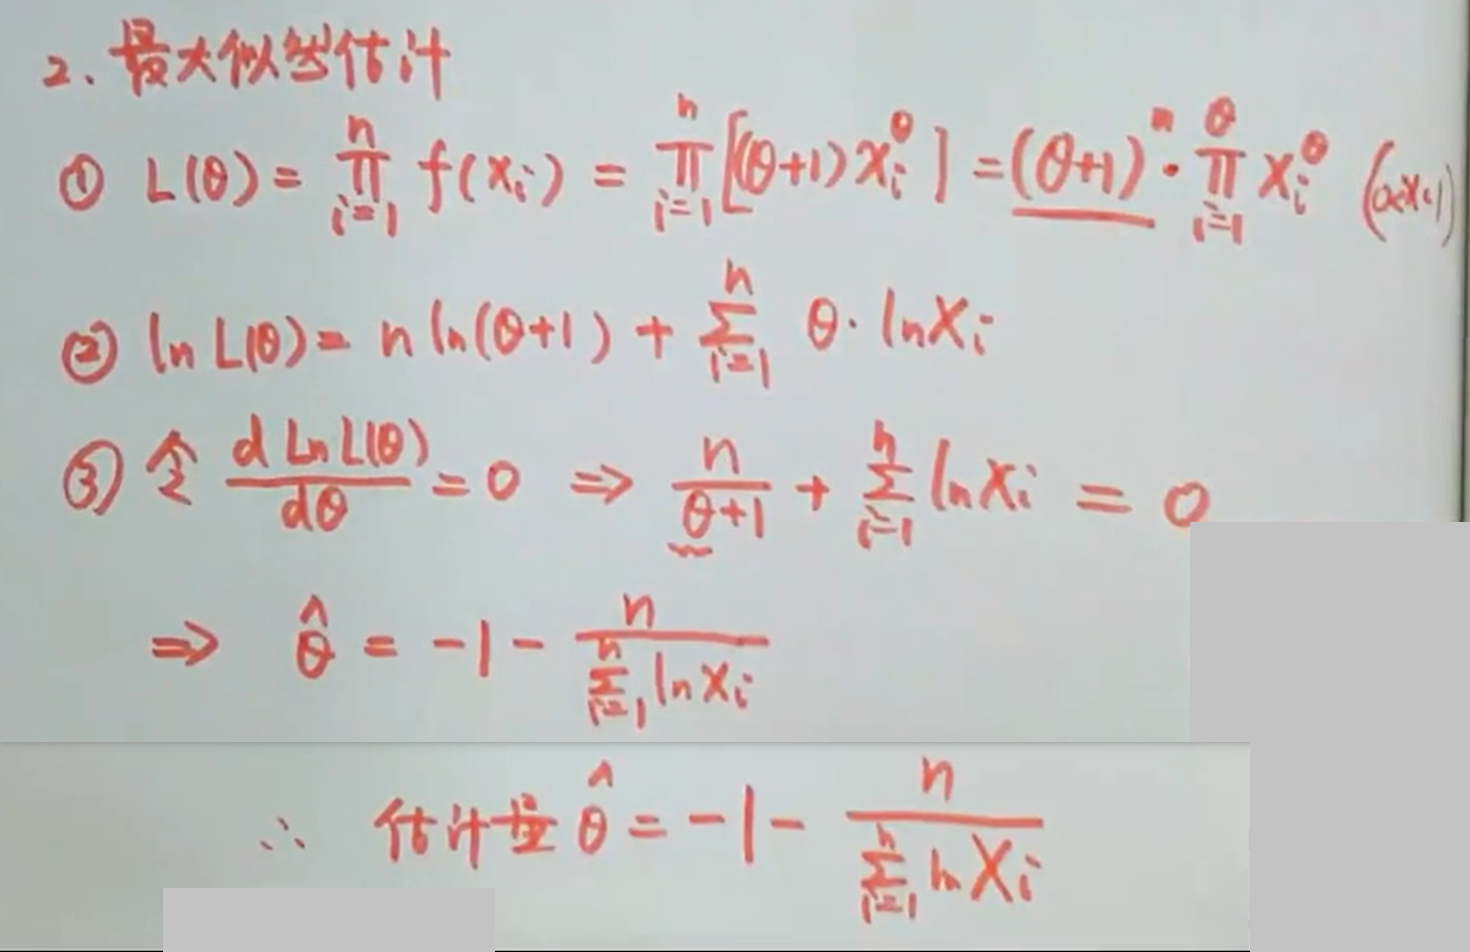 2、最大似然估计
① L(θ) = ∏_{i=1}^{n} f(x_i) = ∏_{i=1}^{n} [(θ+1) x_i^θ] = (θ+1)^n · ∏_{i=1}^{θ} x_i^θ (0<x<1)
② ln L(θ) = n ln(θ+1) + ∑_{i=1}^{n} θ · ln x_i
③ 令 d Ln L(θ) / dθ = 0 ⇒ n/(θ+1) + ∑_{i=1}^{n} ln x_i = 0
⇒ θ̂ = -1 - n / ∑_{i=1}^{n} ln x_i
∴ 估计量 θ̂ = -1 - n / ∑_{i=1}^{n} ln X_i